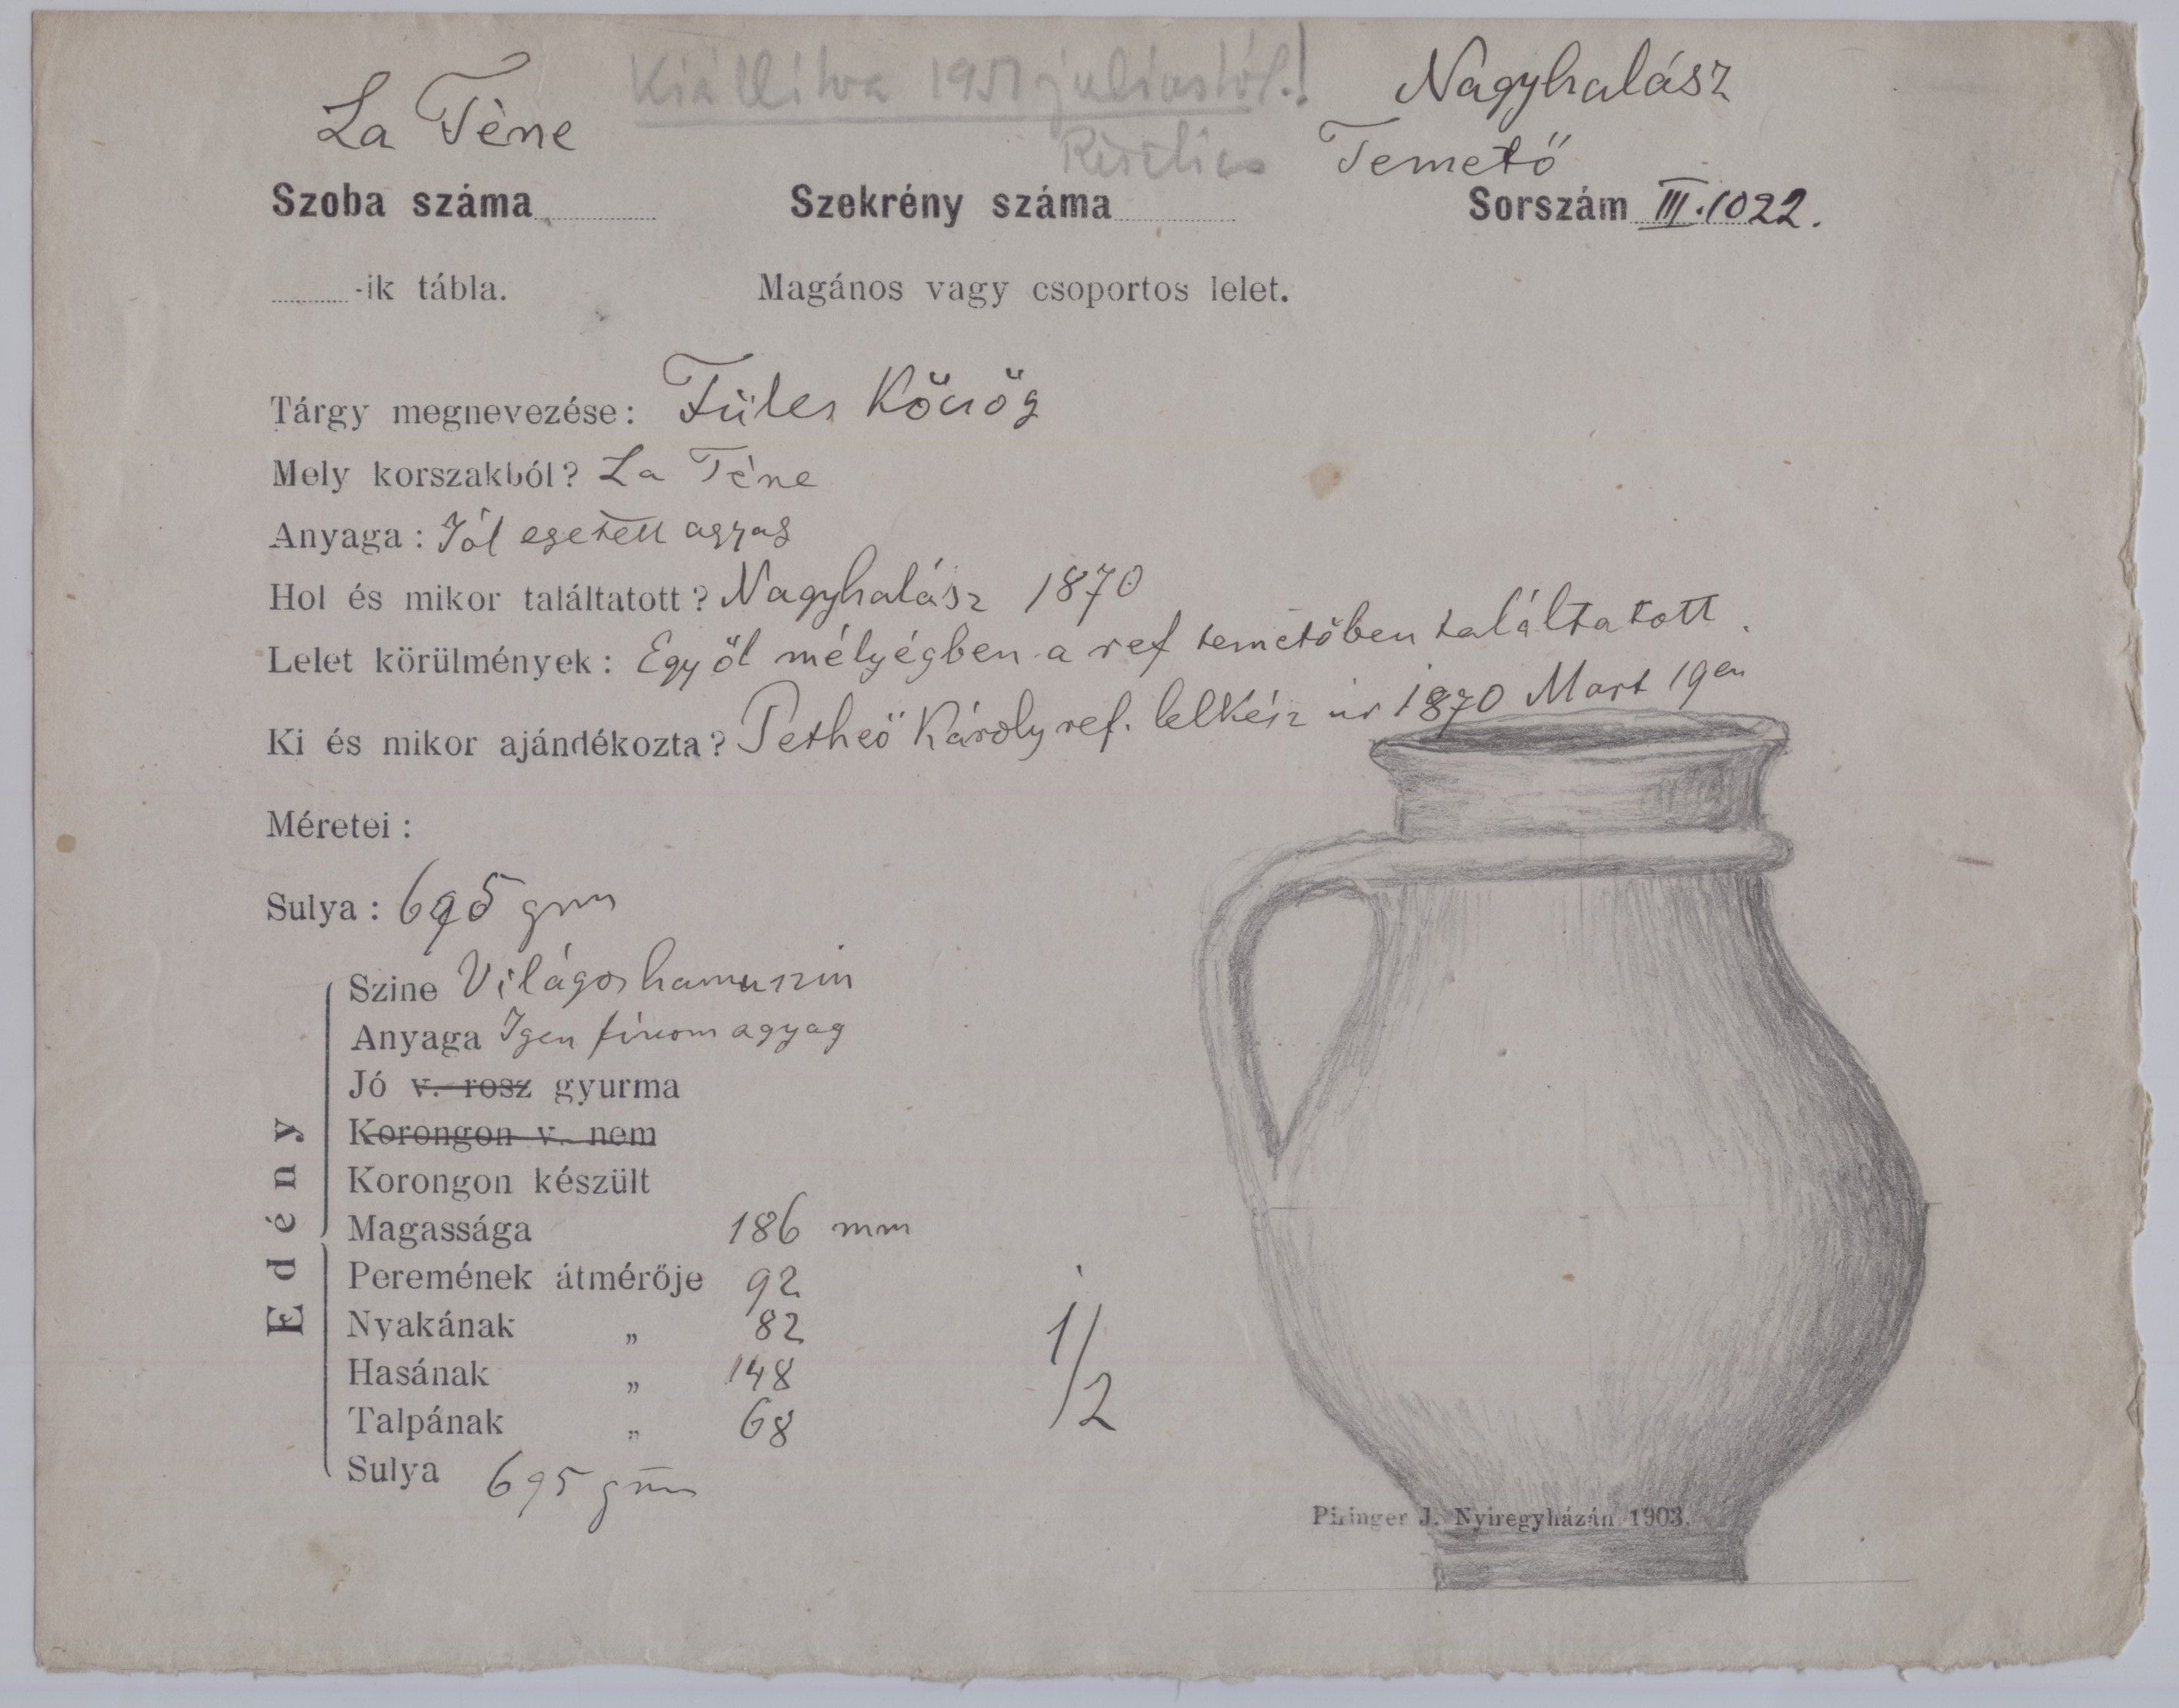 Kiállítva 1951 juliustól!
La Tène
Nagyhalász
Temető
Szoba száma
Szekrény száma
Sorszám III. 1022.
-ik tábla.
Magános vagy csoportos lelet.
Tárgy megnevezése: Füles Kőcsög
Mely korszakból? La Tène
Anyaga: Jól egetett agyag
Hol és mikor találtatott? Nagyhalász 1870
Lelet körülmények: Egy öl mélyégben a ref temetőben találtatott.
Ki és mikor ajándékozta? Petheő Károly ref. lelkész úr 1870 Mart 19en
Méretei:
Sulya: 695 gmm
Edény
Szine Világos hamuszin
Anyaga Igen finom agyag
Jó v. rosz gyurma
Korongon v. nem
Korongon készült
Magassága 186 mm
Peremének átmérője 92
Nyakának „ 82
Hasának „ 148
Talpának „ 68
1/2
Sulya 695 gmm
Piringer J. Nyiregyházán 1903.